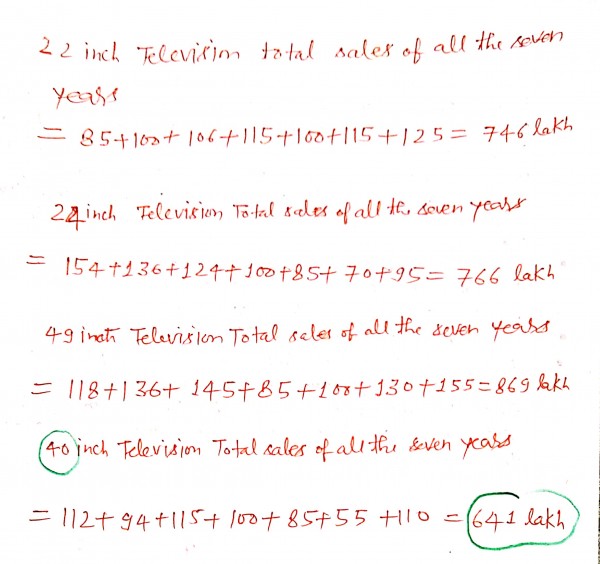 22 inch Television total sales of all the seven
years
= 85+100+106+115+100+115+125= 746 lakh
24 inch Television Total sales of all the seven years
= 154+136+124+100+85+70+95= 766 lakh
49 inch Television Total sales of all the seven years
= 118+136+145+85+100+130+155=869 lakh
40 inch Television Total sales of all the seven years
= 112+94+115+100+85+55+110 = 641 lakh